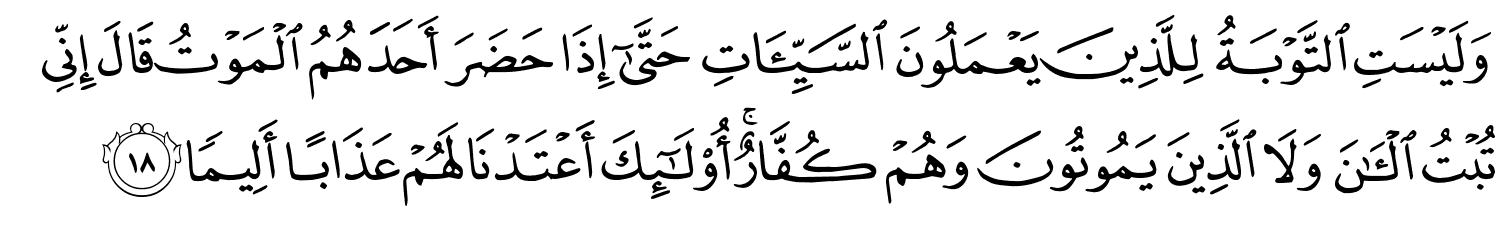 وَلَيْسَتِ ٱلتَّوْبَةُ لِلَّذِينَ يَعْمَلُونَ ٱلسَّيِّـَٔاتِ حَتَّىٰٓ إِذَا حَضَرَ أَحَدَهُمُ ٱلْمَوْتُ قَالَ إِنِّى
تُبْتُ ٱلْـَٰٔنَ وَلَا ٱلَّذِينَ يَمُوتُونَ وَهُمْ كُفَّارٌ ۚ أُو۟لَـٰٓئِكَ أَعْتَدْنَا لَهُمْ عَذَابًا أَلِيمًا ١٨